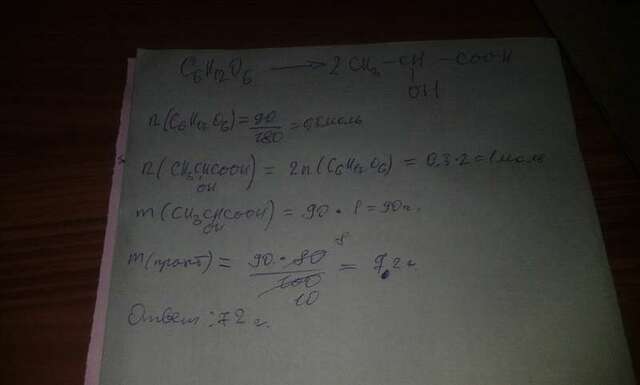 C6H12O6 → 2 CH3 – CH – COOH
OH
n(C6H12O6) = 90/180 = 0,5 моль
n(CH3CHCOOH) = 2n(C6H12O6) = 0,5·2 = 1 моль
OH
m(CH3CHCOOH) = 90 · 1 = 90 г.
OH
m(практ) = 90·80/100 = 72 г
8
10
Ответ: 72 г.